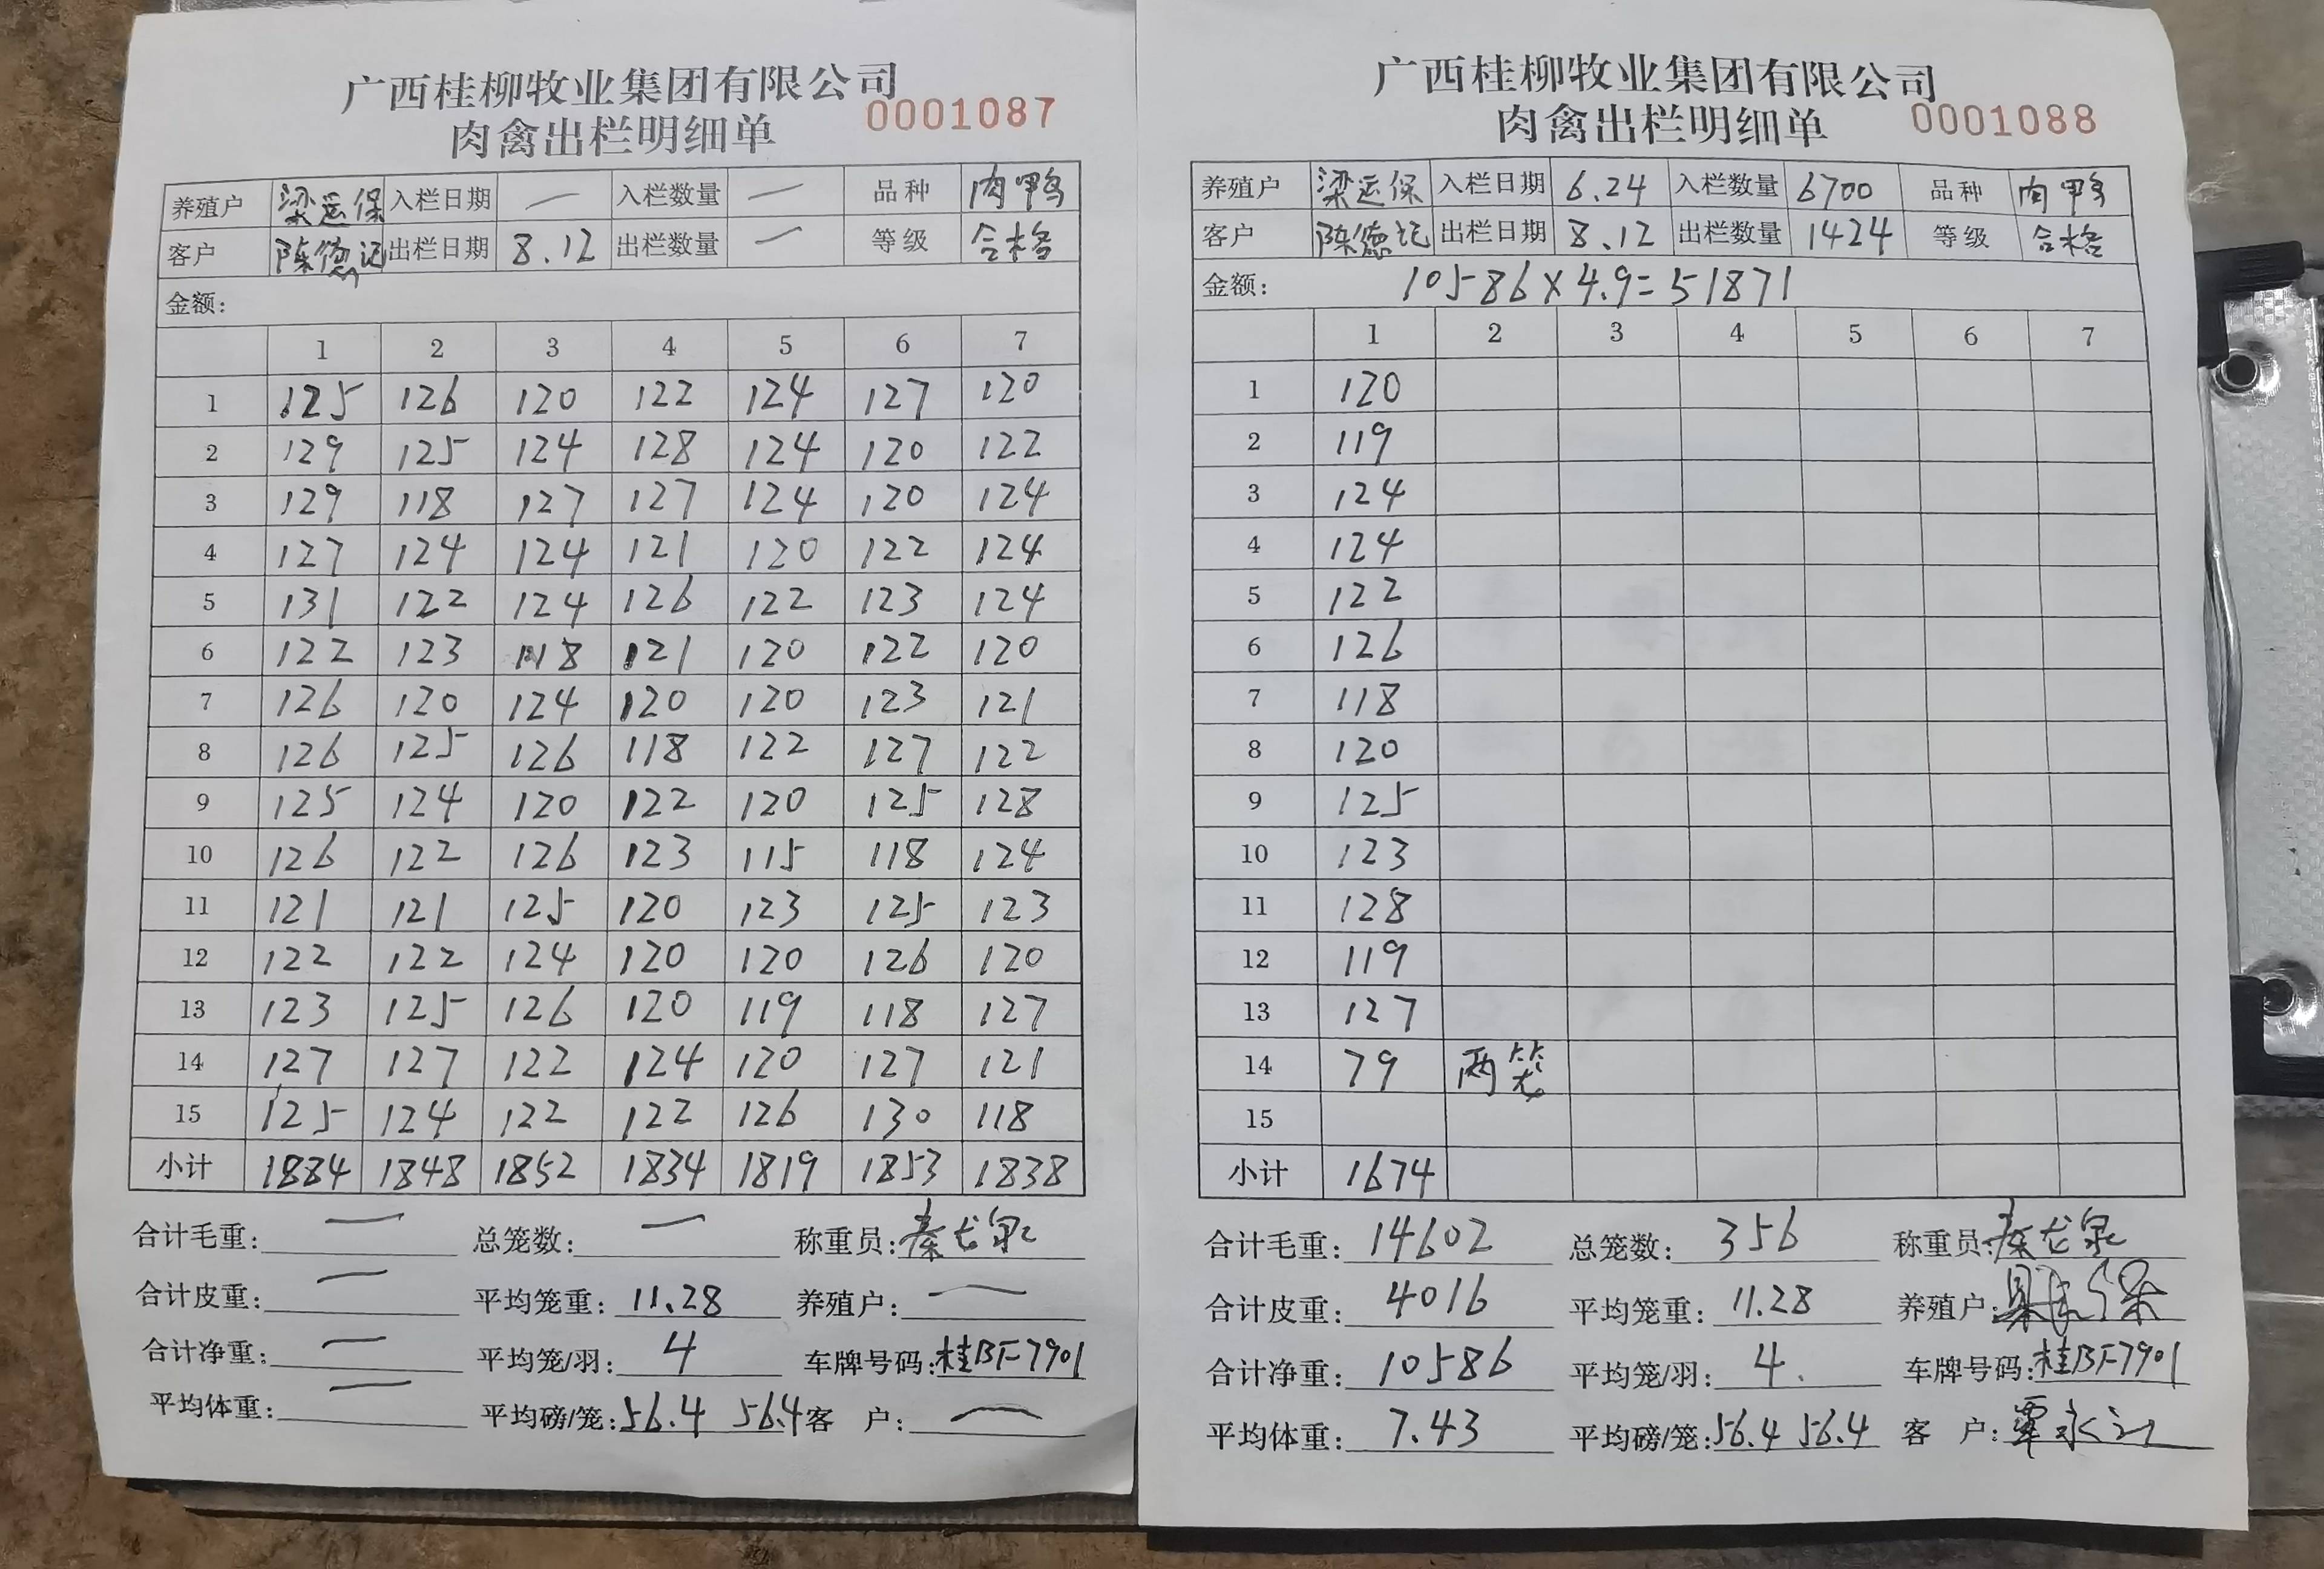 广西桂柳牧业集团有限公司
肉禽出栏明细单 0001087
养殖户 梁运保 入栏日期 — 入栏数量 — 品种 肉鸭
客户 陈德记 出栏日期 8.12 出栏数量 — 等级 合格
金额:
1 2 3 4 5 6 7
1 125 126 120 122 124 127 120
2 129 125 124 128 124 120 122
3 129 118 127 127 124 120 124
4 127 124 124 121 120 122 124
5 131 122 124 126 122 123 124
6 122 123 118 121 120 122 120
7 126 120 124 120 120 123 121
8 126 125 126 118 122 127 122
9 125 124 120 122 120 125 128
10 126 122 126 123 115 118 124
11 121 121 125 120 123 125 123
12 122 122 124 120 120 126 120
13 123 125 126 120 119 118 127
14 127 127 122 124 120 127 121
15 125 124 122 122 126 130 118
小计 1884 1848 1852 1834 1819 1853 1838
合计毛重: — 总笼数: — 称重员: 秦龙泉
合计皮重: — 平均笼重: 11.28 养殖户: —
合计净重: — 平均笼/羽: 4 车牌号码: 桂BF7901
平均体重: — 平均磅/笼: 56.4 56.4 客 户: —
广西桂柳牧业集团有限公司
肉禽出栏明细单 0001088
养殖户 梁运保 入栏日期 6.24 入栏数量 6700 品种 肉鸭
客户 陈德记 出栏日期 8.12 出栏数量 1424 等级 合格
金额: 10586×4.9=51871
1 2 3 4 5 6 7
1 120
2 119
3 124
4 124
5 122
6 126
7 118
8 120
9 125
10 123
11 128
12 119
13 127
14 79 两笼
15
小计 1674
合计毛重: 14602 总笼数: 356 称重员: 秦龙泉
合计皮重: 4016 平均笼重: 11.28 养殖户:
合计净重: 10586 平均笼/羽: 4. 车牌号码: 桂BF7901
平均体重: 7.43 平均磅/笼: 56.4 56.4 客 户: 覃永江